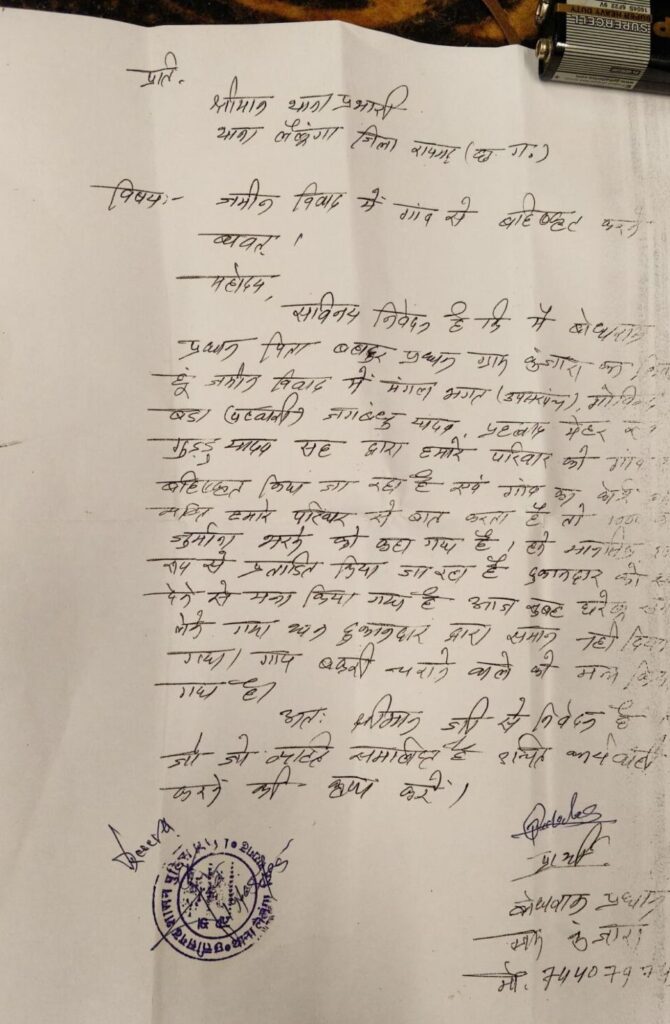 SUPERCELL
SUPER HEAVY DUTY
प्रति,
श्रीमान थाना प्रभारी
थाना लैलूंगा जिला रायगढ़ (छ. ग.)
विषय:- जमीन विवाद में गांव से बहिष्कृत करने
बावत् ।
महोदय,
सविनय निवेदन है कि मैं
प्रधान पिता बहादुर प्रधान ग्राम कुंजारा का
हूं जमीन विवाद में मंगल भगत (उपसरपंच),
जगबंधु यादव, प्रहलाद मेहर
गुड्डु यादव सह द्वारा हमारे परिवार को गांव
बहिष्कृत किया जा रहा है एवं गांव का कोई
व्यक्ति हमारे परिवार से बात करता है तो
जुर्माना भरने को कहा गया है। हमे मानसिक
रूप से प्रताडित किया जा रहा है दुकानदार को
देने से मना किया गया है आज सुबह घरेलू
लेने गया था दुकानदार द्वारा समान नही दिया
गया। गाय बकरी चराने वाले को मना किया
गया है।
अतः श्रीमान जी से निवेदन है
जो जो व्यक्ति है उचित कार्यवाही
करने की कृपा करें।
प्रार्थी
प्रधान
कुंजारा
मो. 744079